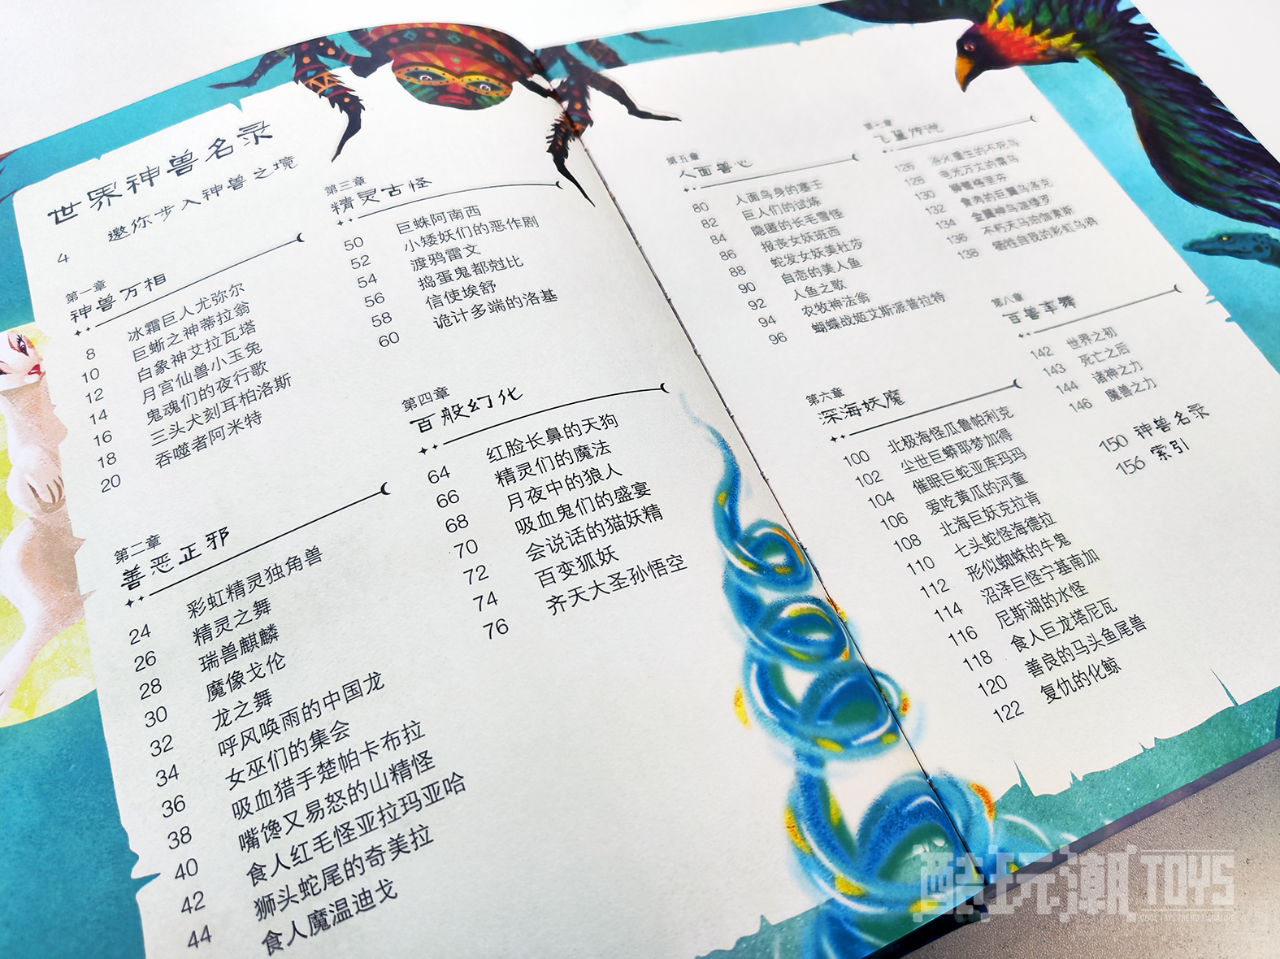 世界神兽名录
邀你步入神兽之境
4
第一章
神兽万相
8 冰霜巨人尤弥尔
10 巨蜥之神蒂拉翁
12 白象神艾拉瓦塔
14 月宫仙兽小玉兔
16 鬼魂们的夜行歌
18 三头犬刻耳柏洛斯
20 吞噬者阿米特
第二章
善恶正邪
24 彩虹精灵独角兽
26 精灵之舞
28 瑞兽麒麟
30 魔像戈伦
32 龙之舞
34 呼风唤雨的中国龙
36 女巫们的集会
38 吸血猎手楚帕卡布拉
40 嘴馋又易怒的山精怪
42 食人红毛怪亚拉玛亚哈
44 狮头蛇尾的奇美拉
食人魔温迪戈
第三章
精灵古怪
50 巨蛛阿南西
52 小矮妖们的恶作剧
54 渡鸦雷文
56 捣蛋鬼都兙比
58 信使埃舒
60 诡计多端的洛基
第四章
百般幻化
64 红脸长鼻的天狗
66 精灵们的魔法
68 月夜中的狼人
70 吸血鬼们的盛宴
72 会说话的猫妖精
74 百变狐妖
76 齐天大圣孙悟空
第五章
人面兽心
80 人面鸟身的塞壬
82 巨人们的试炼
84 隐匿的长毛雪怪
86 报丧女妖班西
88 蛇发女妖美杜莎
90 自恋的美人鱼
92 人鱼之歌
94 农牧神法翁
96 蝴蝶战姬艾斯派普拉特
第六章
深海妖魔
100 北极海怪瓜鲁帕利克
102 尘世巨蟒耶梦加得
104 催眠巨蛇亚库玛玛
106 爱吃黄瓜的河童
108 北海巨妖克拉肯
110 七头蛇怪海德拉
112 形似蜘蛛的牛鬼
114 沼泽巨怪宁基南加
116 尼斯湖的水怪
118 食人巨龙塔尼瓦
120 善良的马头鱼尾兽
122 复仇的化鲸
第七章
飞翼传说
126 浴火重生的不死鸟
128 电光万丈的雷鸟
130 狮鹫格里芬
132 食肉的巨翼鸟洛克
134 金翼神鸟迦楼罗
136 不朽天马珀伽索斯
138 牺牲自我的彩虹乌鸦
第八章
百兽率舞
142 世界之初
143 死亡之后
144 诸神之力
146 魔兽之力
150 神兽名录
156 索引
酷玩潮TOYS